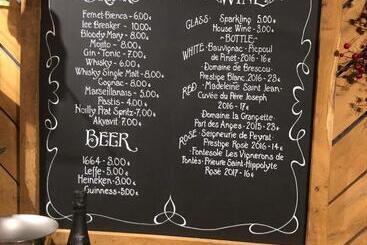 Fernet-Bianca - 6.00€
Ice Breaker - 10.00€
Bloody Mary - 8.00€
Mojito - 8.00€
Gin-Tonic - 7.00€
Whisky - 6.00€
Whisky Single Malt - 8.00€
Cognac - 8.00€
Marseillansais - 5.00€
Pastis - 4.00€
Noilly Prat Spritz - 7.00€
Akvavit 7.00€
BEER
1664 - 3.00€
Leffe - 5.00€
Heineken - 3.00€
Guinness - 5.00€
WINE
GLASS: Sparkling 5.00€
House Wine - 3.00€
- BOTTLE -
WHITE: Bauvignac - Picpoul
de Pinet - 2016 - 16€
Domaine de Brescou -
Prestige Blanc 2016 - 23€
RED: Madeleine Saint Jean -
Cuvée du Père Joseph
2016 - 17€
Domaine la Grangette
Part des Anges - 2015 - 23€
ROSÉ - Seigneurie de Peyrat
Prestige Rosé 2016 - 14€
Fontesole Les Vignerons de
Fontès - Prieure Saint-Hippolyte
Rosé 2017 - 16€